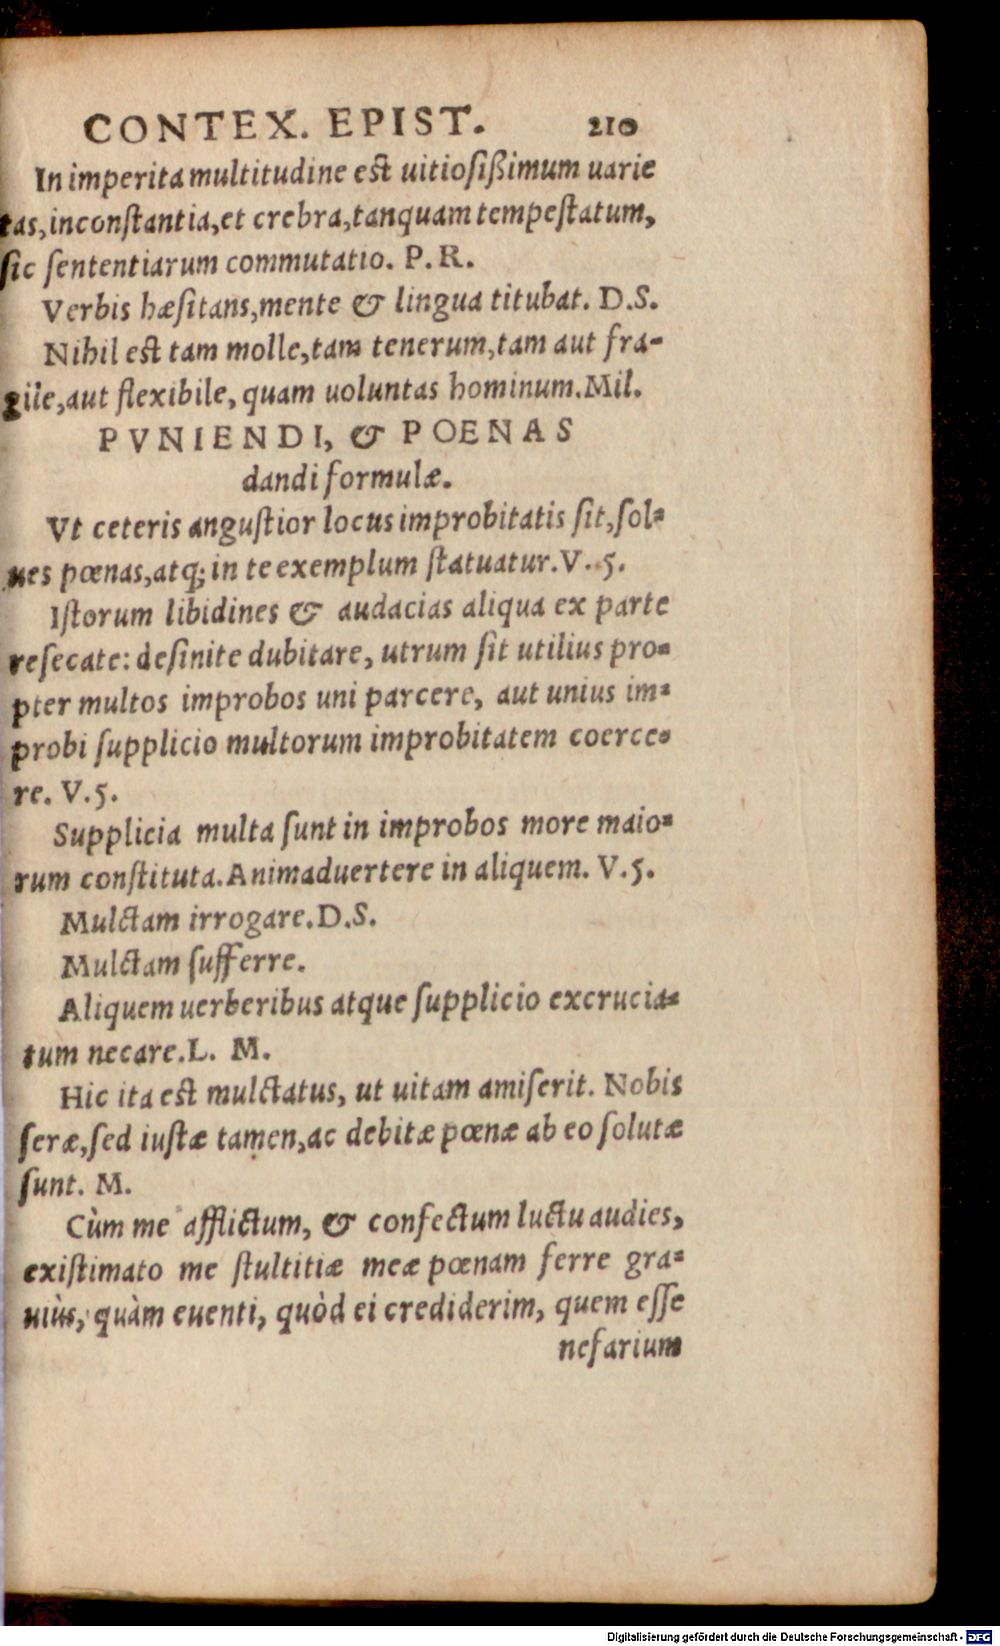 CONTEX. EPIST. 210
In imperita multitudine est uitiosißimum uarie
tas, inconstantia, et crebra, tanquam tempestatum,
sic sententiarum commutatio. P. R.
Verbis hæsitans, mente & lingua titubat. D.S.
Nihil est tam molle, tam tenerum, tam aut fra-
gile, aut flexibile, quam uoluntas hominum. Mil.
PVNIENDI, & POENAS
dandi formulæ.
Vt ceteris angustior locus improbitatis sit, sol-
ues pœnas, atq; in te exemplum statuatur. V. 5.
Istorum libidines & audacias aliqua ex parte
resecate: desinite dubitare, utrum sit utilius pro-
pter multos improbos uni parcere, aut unius im-
probi supplicio multorum improbitatem coerce-
re. V. 5.
Supplicia multa sunt in improbos more maio-
rum constituta. Animaduertere in aliquem. V. 5.
Mulctam irrogare. D.S.
Mulctam sufferre.
Aliquem uerberibus atque supplicio excrucia-
tum necare. L. M.
Hic ita est mulctatus, ut uitam amiserit. Nobis
seræ, sed iustæ tamen, ac debitæ pœnæ ab eo solutæ
sunt. M.
Cùm me afflictum, & confectum luctu audies,
existimato me stultitiæ meæ pœnam ferre gra-
uiùs, quàm euenti, quòd ei crediderim, quem esse
nefarium
Digitalisierung gefördert durch die Deutsche Forschungsgemeinschaft - DFG